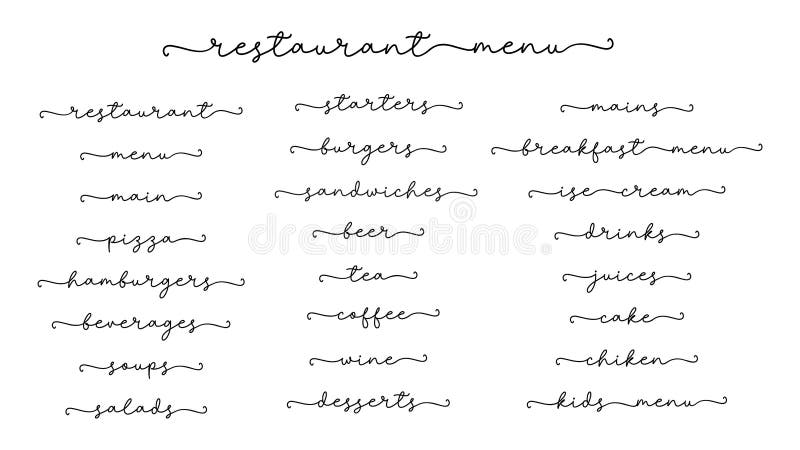 restaurant menu
restaurant
menu
main
pizza
hamburgers
beverages
soups
salads
starters
burgers
sandwiches
beer
tea
coffee
wine
desserts
mains
breakfast menu
ise cream
drinks
juices
cake
chiken
kids menu
dreamstime